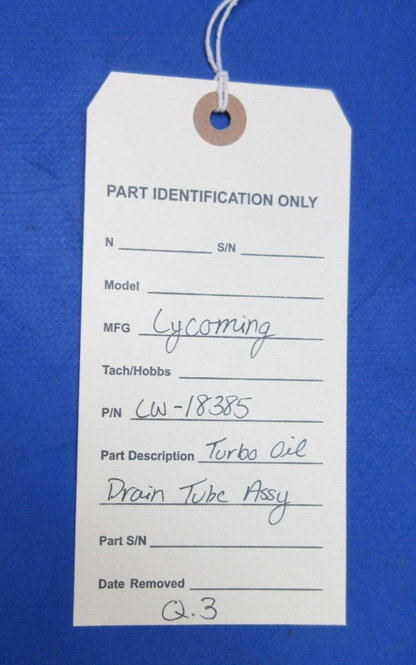 PART IDENTIFICATION ONLY
N S/N
Model
MFG Lycoming
Tach/Hobbs
P/N LW-18385
Part Description Turbo Oil
Drain Tube Assy
Part S/N
Date Removed
Q.3